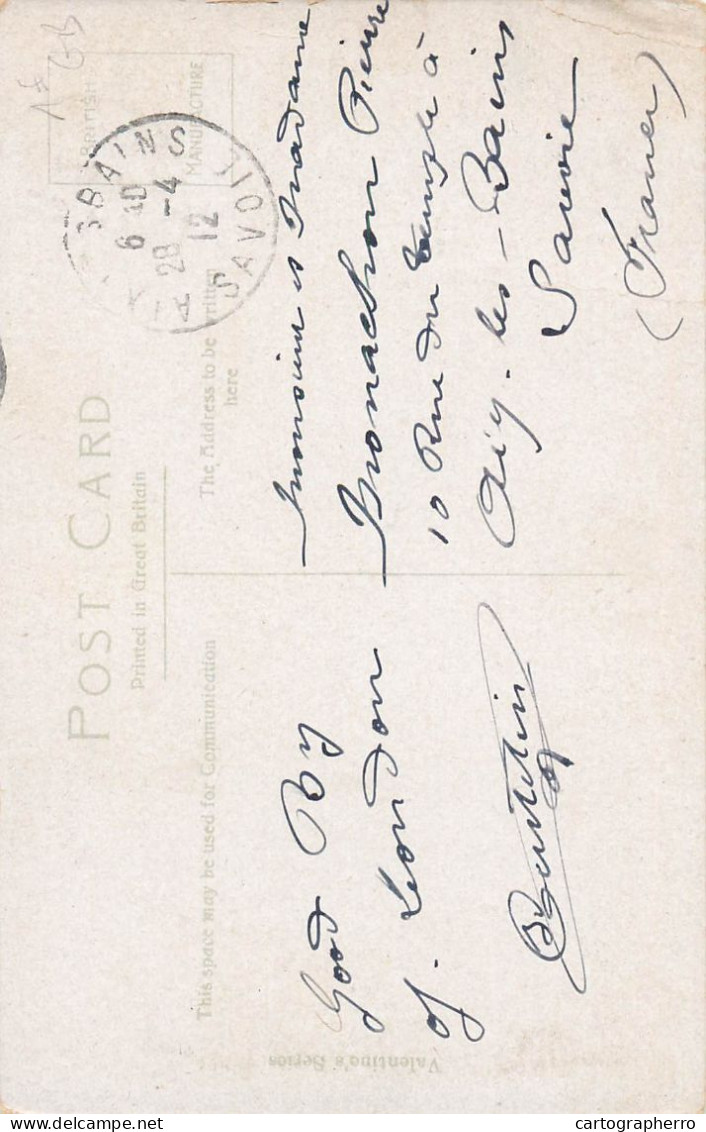 POST CARD
Printed in Great Britain
This space may be used for Communication
The Address to be written
here
BRITISH
MANUFACTURE
BAINS
6 40
28 -4
12
SAVOIE
Good By
of. London
Monsieur et Madame
Pierre
10 Rue du Temple à
Aix-les-Bains
Savoie
(France)
Valentine's Series
cartographerro
delcampe.net